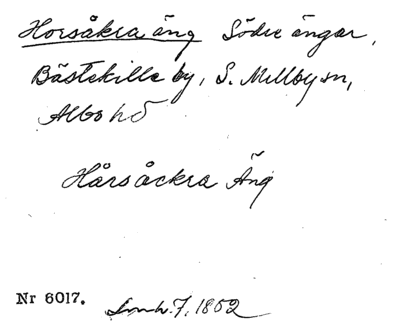 Horsåkra äng Södre ängar,
Bästekille by, S. Mellby sn,
Albo hd
Hårsåckra Äng
Nr 6017. Lmh. 7, 1802